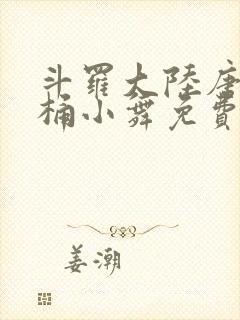 斗羅大陸唐
桶小舞免費
姜潮